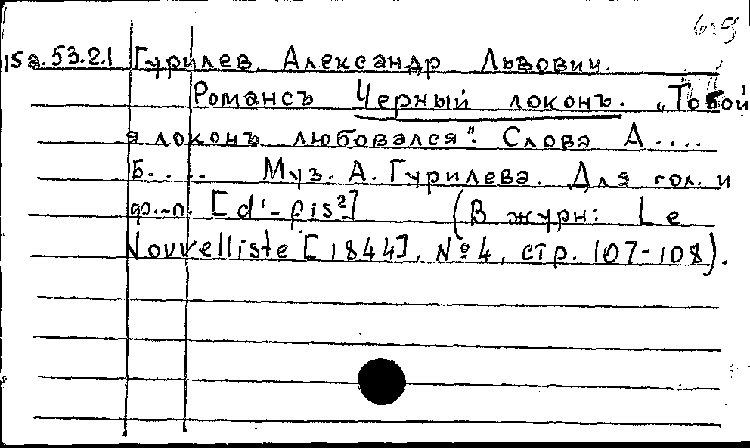 15а.53.2.1 Гурилев. Александр Львович.
Романсъ Черный локонъ. „Тобой
я локонъ любовался". Слова А....
Б.... Муз. А. Гурилева. Для гол. и
ф.-п. [d¹-fis²] (В журн: Le
Nouvelliste [1844], № 4, стр. 107-108).